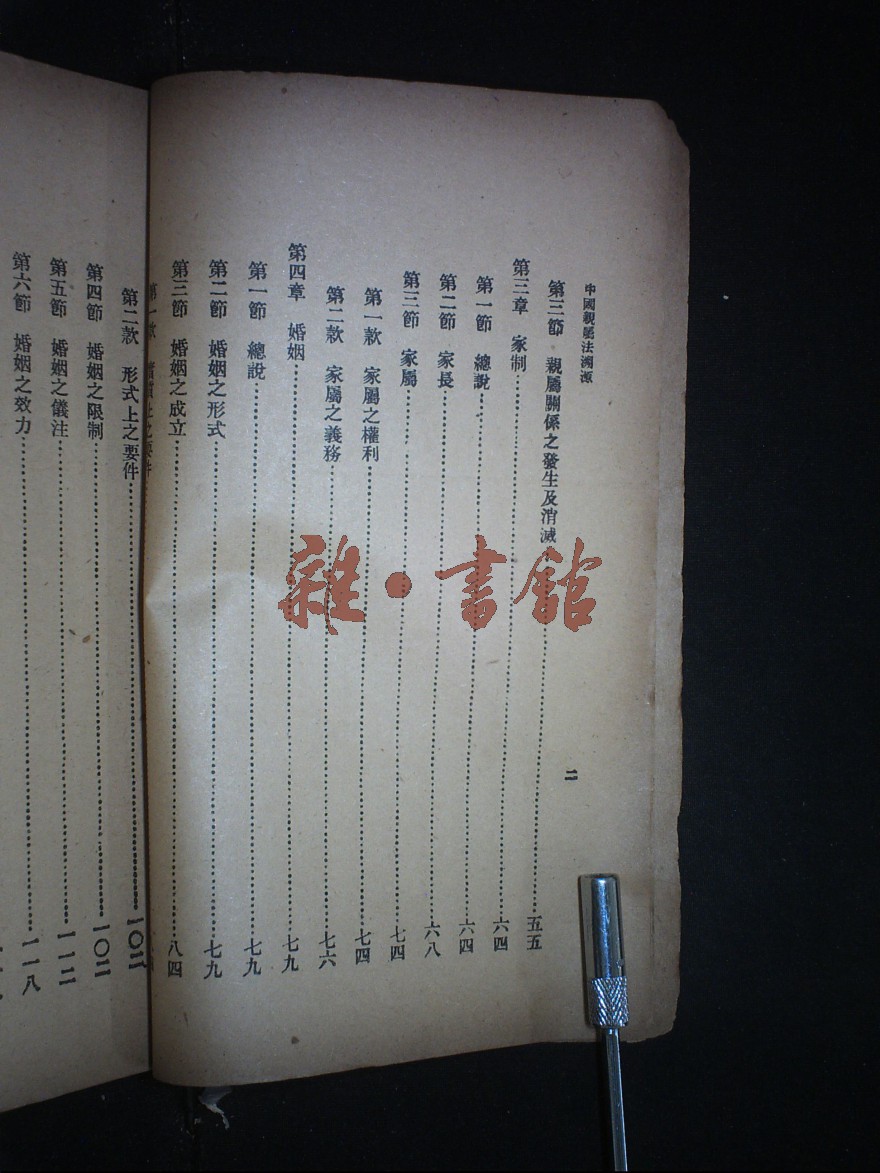 中國親屬法溯源
二
第三節 親屬關係之發生及消滅 五五
第三章 家制 六四
第一節 總說 六四
第二節 家長 六八
第三節 家屬 七四
第一款 家屬之權利 七四
第二款 家屬之義務 七六
第四章 婚姻 七九
第一節 總說 七九
第二節 婚姻之形式 七九
第三節 婚姻之成立 八四
第一款 實質上之要件
第二款 形式上之要件 一〇二
第四節 婚姻之限制 一〇二
第五節 婚姻之儀注 一一二
第六節 婚姻之效力 一一八
雜·書館